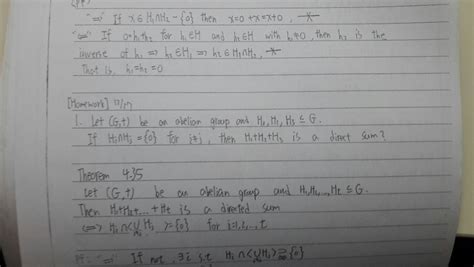 "⇒" If x∈H₁∩H₂-{0} then x=0+x=x+0, ※
"⇐" If 0=h₁+h₂ for h₁∈H and h₂∈H with h₁≠0, then h₂ is the
inverse of h₁ ⇒ h₂∈H₁ ⇒ h₂∈H₁∩H₂, ※
That is, h₁=h₂=0
[Homework]
1. Let (G,+) be an abelian group and H₁,H₂,H₃ ≤ G.
If Hᵢ∩Hⱼ={0} for i≠j, then H₁+H₂+H₃ is a direct sum?
Theorem 4.35
Let (G,+) be an abelian group and H₁,H₂,...,Hₜ ≤ G.
Then H₁+H₂+...+Hₜ is a directed sum
⇔ Hᵢ∩<∪Hⱼ>={0} for i=1,2,...,t
"⇒" If not, ∃i s.t. Hᵢ∩<∪Hⱼ>⊋{0}